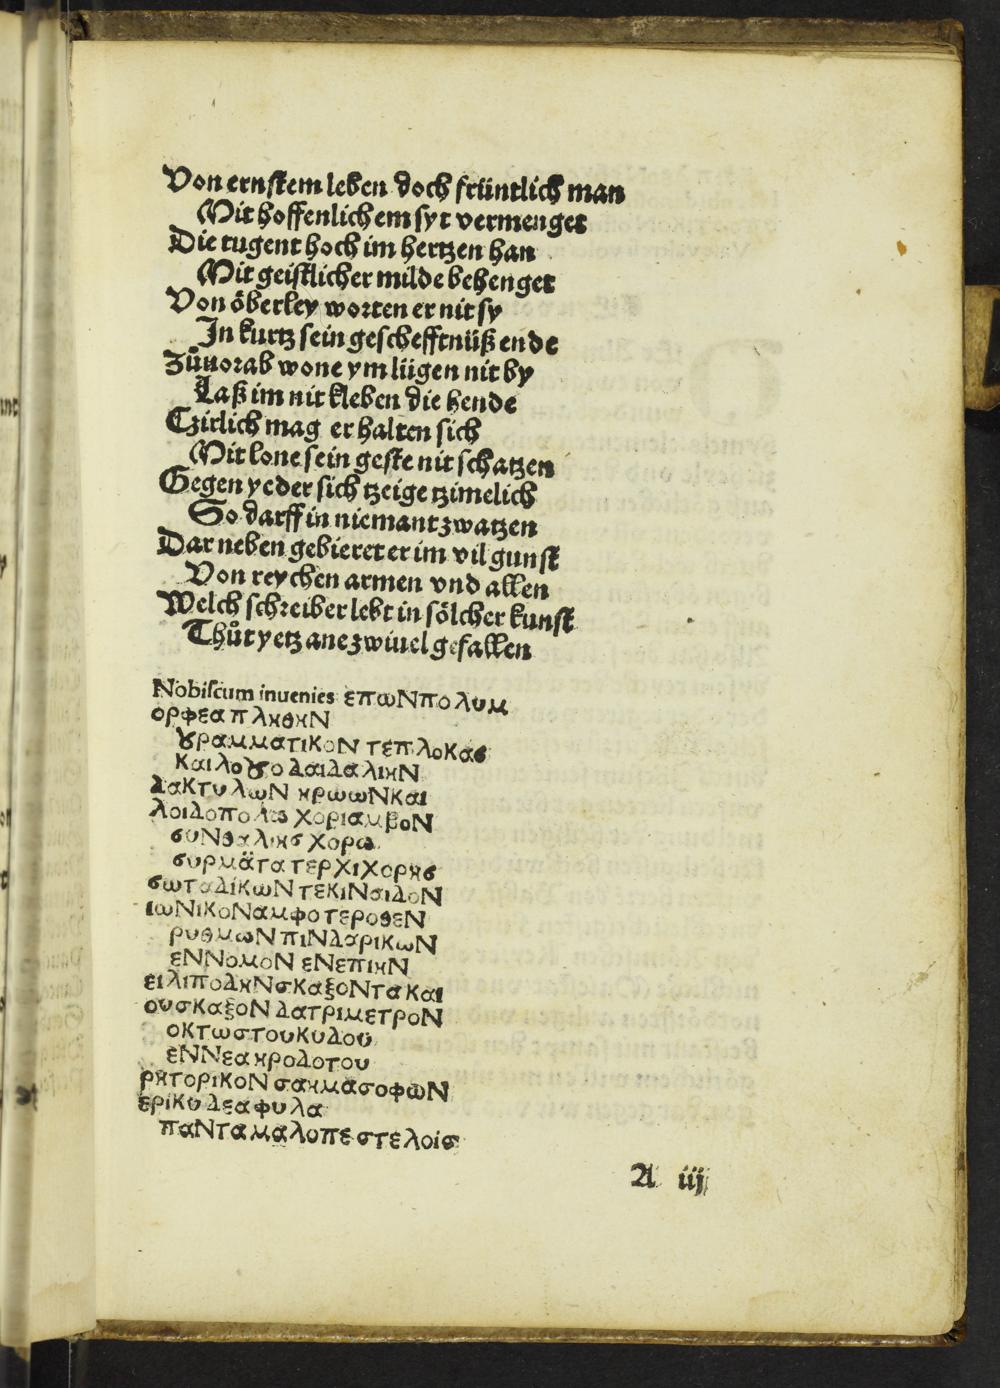 Von ernſtem leben doch früntlich man
Mit hoffenlichem ſyt vermenget
Die tugent hoch im hertzen han
Mit geiſtlicher milde behenget
Von öberley worten er nit ſy
In kurtz ſein geſchefftnüß ende
Zůuorab wone ym lügen nit by
Laß im nit kleben die hende
Czirlich mag er halten ſich
Mit lone ſein geſte nit ſchatzen
Gegen yeder ſich tzeige tzimelich
So darff in niemant zwatzen
Dar neben gebieret er im vil gunſt
Von reychen armen vnd allen
Welch ſchreiber lebt in ſölcher kunſt
Thůt yetz ane zwiuel gefallen
Nobiſcum inuenies επωΝπολυμ
ορφεαπληθηΝ
γραμματικοΝ τεπλοκας
Και λογο δαιδαλιηΝ
δακτυλωΝ ηρωωΝΚαι
λοιδοπολω χοριαμβοΝ
συΝθαλιης χορω
συρμäτα τερχιχορης
σωταδίκωΝ τεκιΝσιδοΝ
ιωΝικοΝαμφοτεροθεΝ
ρυθμωΝ πιΝδαρικωΝ
εΝΝομοΝ εΝεπιηΝ
ειλιποδηΝσκαξοΝτα Και
ουσκαξοΝ δατριμετροΝ
οκτωστουκυδου
εΝΝεα ηροδοτου
ρητορικοΝ σαημασοφωΝ
ερικυδεα φυλα
παΝταμαλοπεστελοίς
A iij